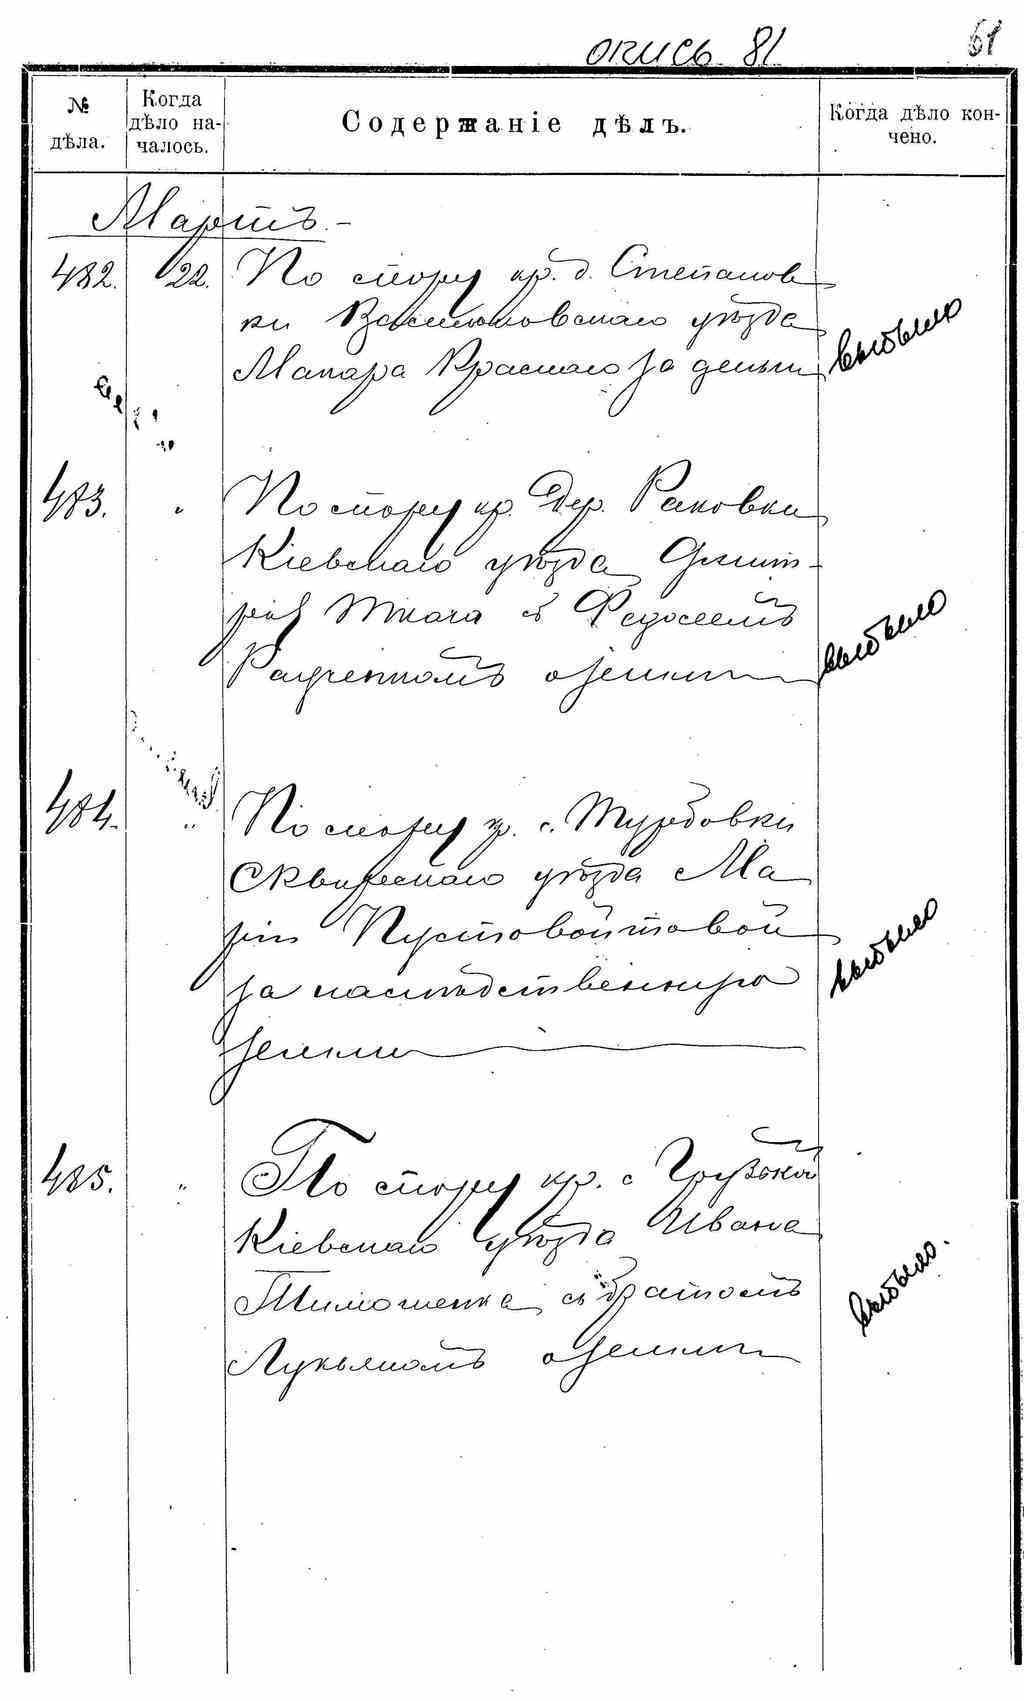 опись 81
61
№ дѣла.
Когда дѣло на-
чалось.
Содержаніе дѣлъ.
Когда дѣло кон-
чено.
Мартъ.-
482. 22. По спору кр. д. Степанов
ки Васильковскаго уѣзда
Макара Краснаго за деньги
выбыло
483. " По спору кр. Дер. Раковки
Кіевскаго уѣзда Дмит-
рія Ткача съ Федосеемъ
Радченкомъ о земли
выбыло
484. " По спору кр. с. Турбовки
Сквирскаго уѣзда Ма
ріи Пустовойтовой
за наслѣдственную
землю
выбыло
485. " По спору кр. с Грузькой
Кіевскаго уѣзда Ивана
Тимошенка съ братомъ
Лукьяномъ о земли
выбыло.